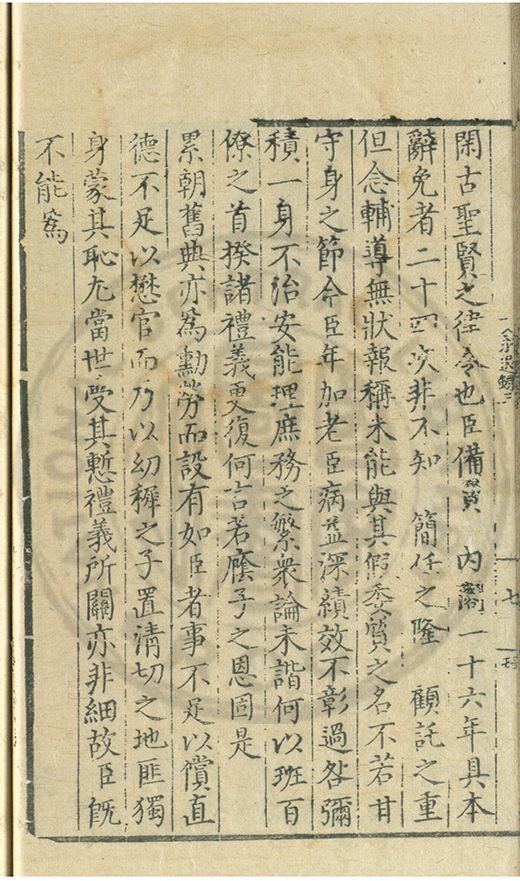 閑古聖賢之律令也臣備員　內閣一十六年具本
辭免者二十四次非不知　簡任之隆　顧託之重
但念輔導無狀報稱未能與其假委質之名不若甘
守身之節今臣年加老臣病益深績效不彰過咎彌
積一身不治安能理庶務之繁衆論未諧何以班百
僚之首揆諸禮義更復何言若廕子之恩固是
累朝舊典亦爲勳勞而設有如臣者事不足以償直
德不足以懋官而乃以幼穉之子置清切之地匪獨
身蒙其恥尤當世受其慙禮義所關亦非細故臣旣
不能爲
七